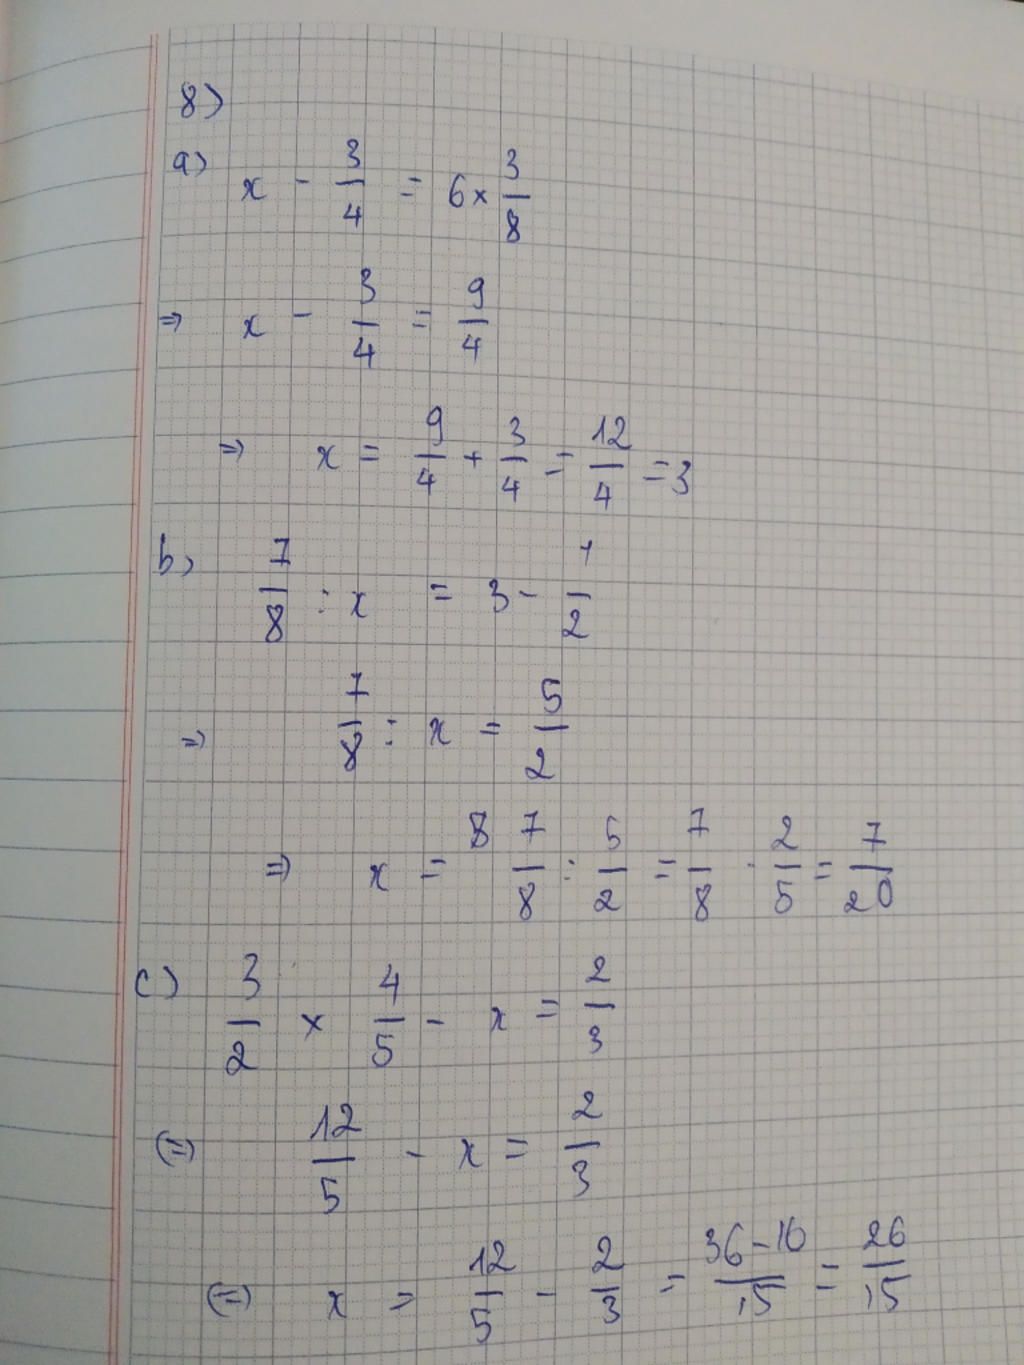 8)
a) x - 3/4 = 6 × 3/8
⇒ x - 3/4 = 9/4
⇒ x = 9/4 + 3/4 = 12/4 = 3
b) 7/8 : x = 3 - 1/2
⇒ 7/8 : x = 5/2
⇒ x = 7/8 : 5/2 = 7/8 · 2/5 = 7/20
c) 3/2 × 4/5 - x = 2/3
(=) 12/5 - x = 2/3
(=) x = 12/5 - 2/3 = 36-10/15 = 26/15